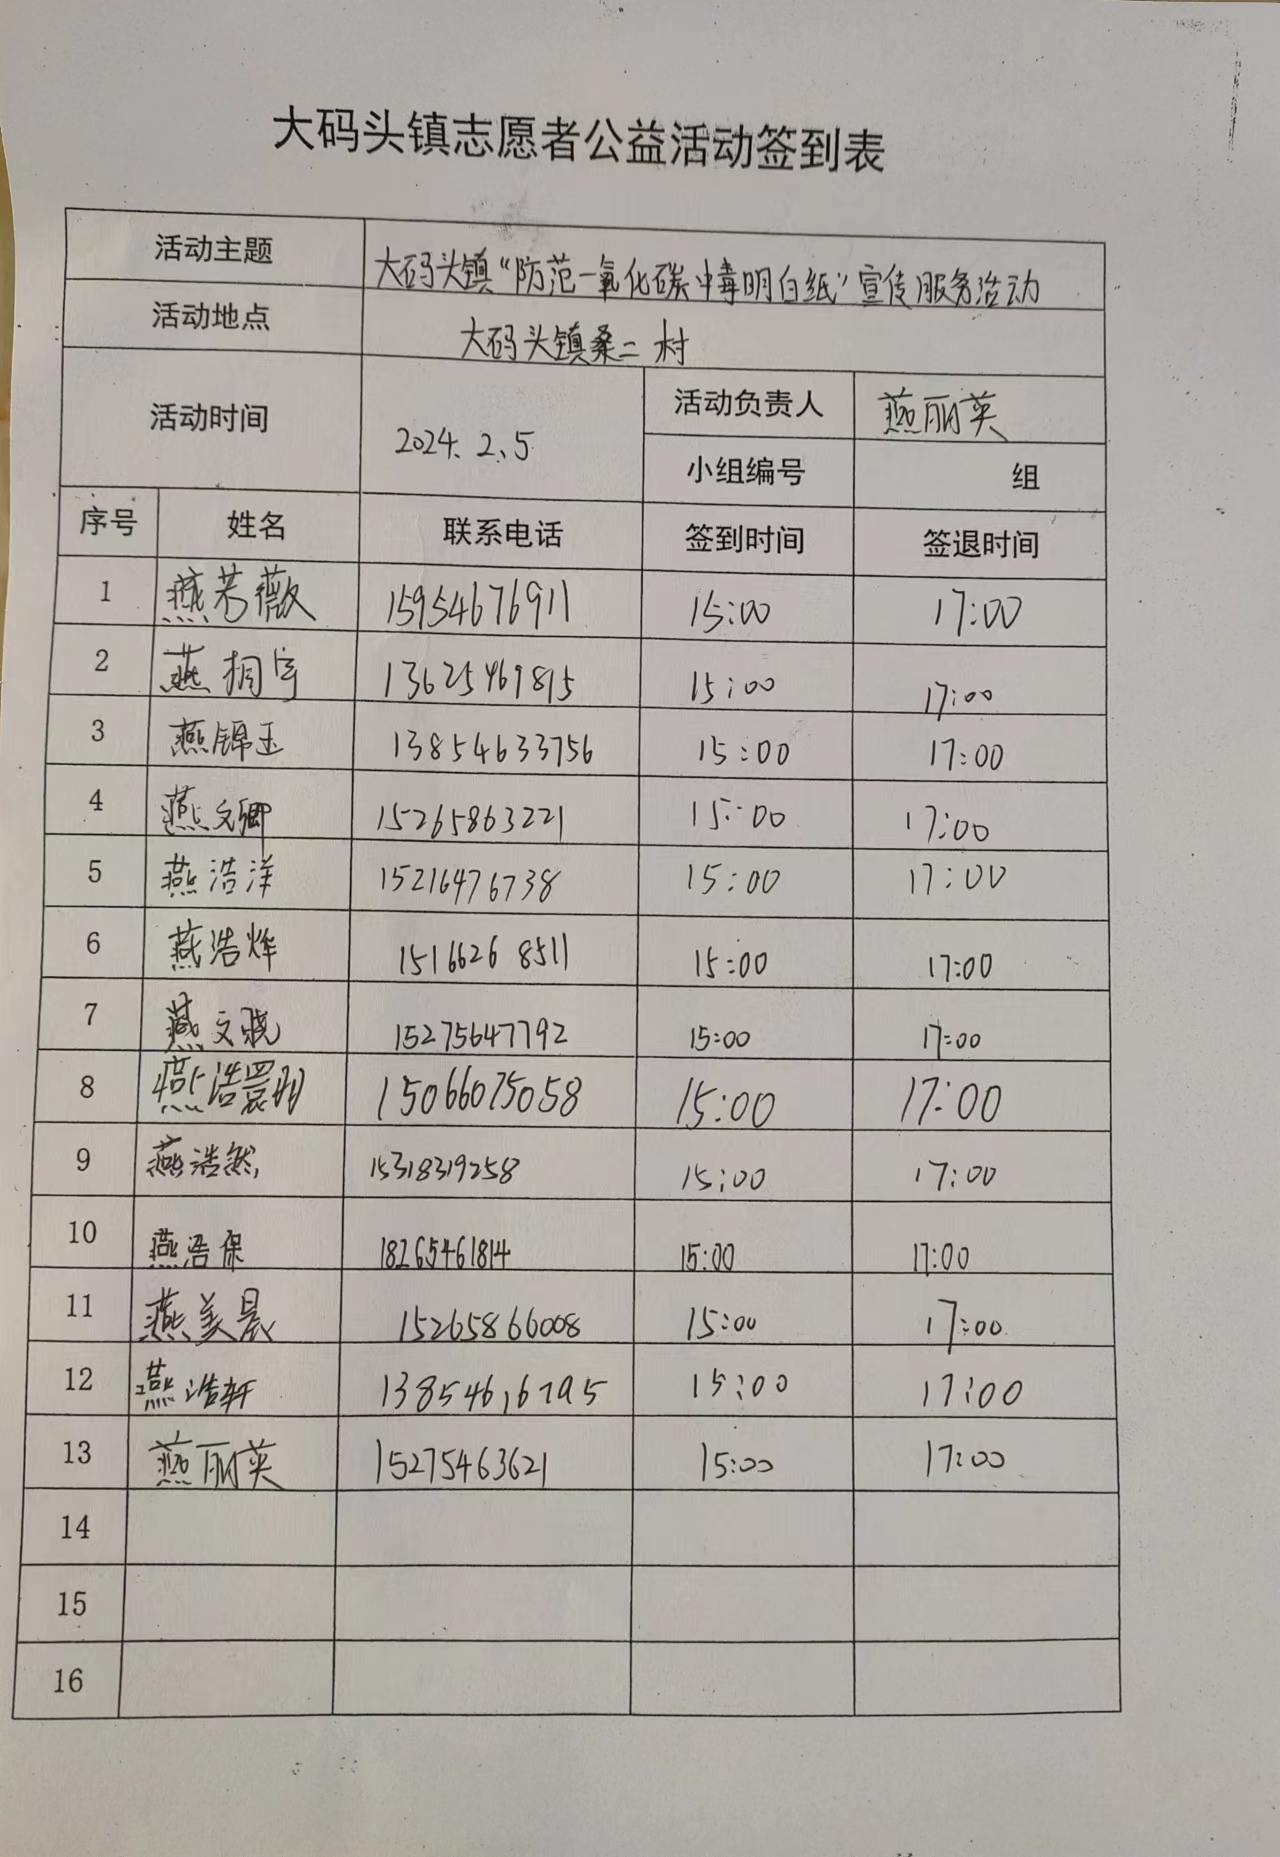 大码头镇志愿者公益活动签到表
活动主题 大码头镇“防范一氧化碳中毒明白纸”宣传服务活动
活动地点 大码头镇桑二村
活动时间 2024.2.5 活动负责人 燕丽英
小组编号 组
序号 姓名 联系电话 签到时间 签退时间
1 燕芳薇 15954676911 15:00 17:00
2 燕 13625469815 15:00 17:00
3 燕锦玉 13854633756 15:00 17:00
4 燕文卿 15265863221 15:00 17:00
5 燕浩洋 15216476738 15:00 17:00
6 燕浩烨 15166268511 15:00 17:00
7 燕文晓 15275647792 15:00 17:00
8 燕浩 15066075058 15:00 17:00
9 燕浩然 15318319258 15:00 17:00
10 燕浩保 18265461814 15:00 17:00
11 燕美晨 15265866008 15:00 17:00
12 燕浩轩 13854616795 15:00 17:00
13 燕丽英 15275463621 15:00 17:00
14
15
16